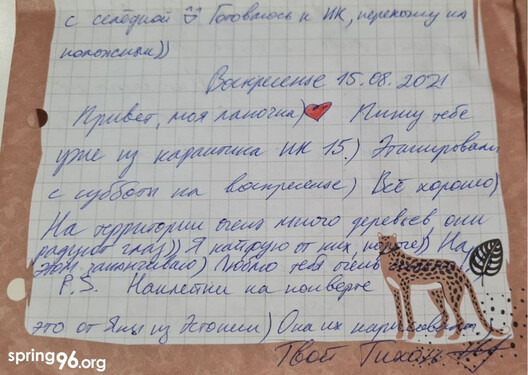 с селёдкой Готовлюсь к ИК, перехожу на
положняк))
Воскресенье 15.08.2021
Привет, моя лапочка) Пишу тебе
уже из карантина ИК 15.) Этапировали
с субботы на воскресенье) Всё хорошо)
На территории очень много деревьев, они
радуют глаз)) Я кайфую от них, короче)) На
этом заканчиваю) Люблю тебя очень
P.S. Наклейки на конверте
это от Яны из Эстонии) Она их нарисовала)
Твой Тихон
spring96.org